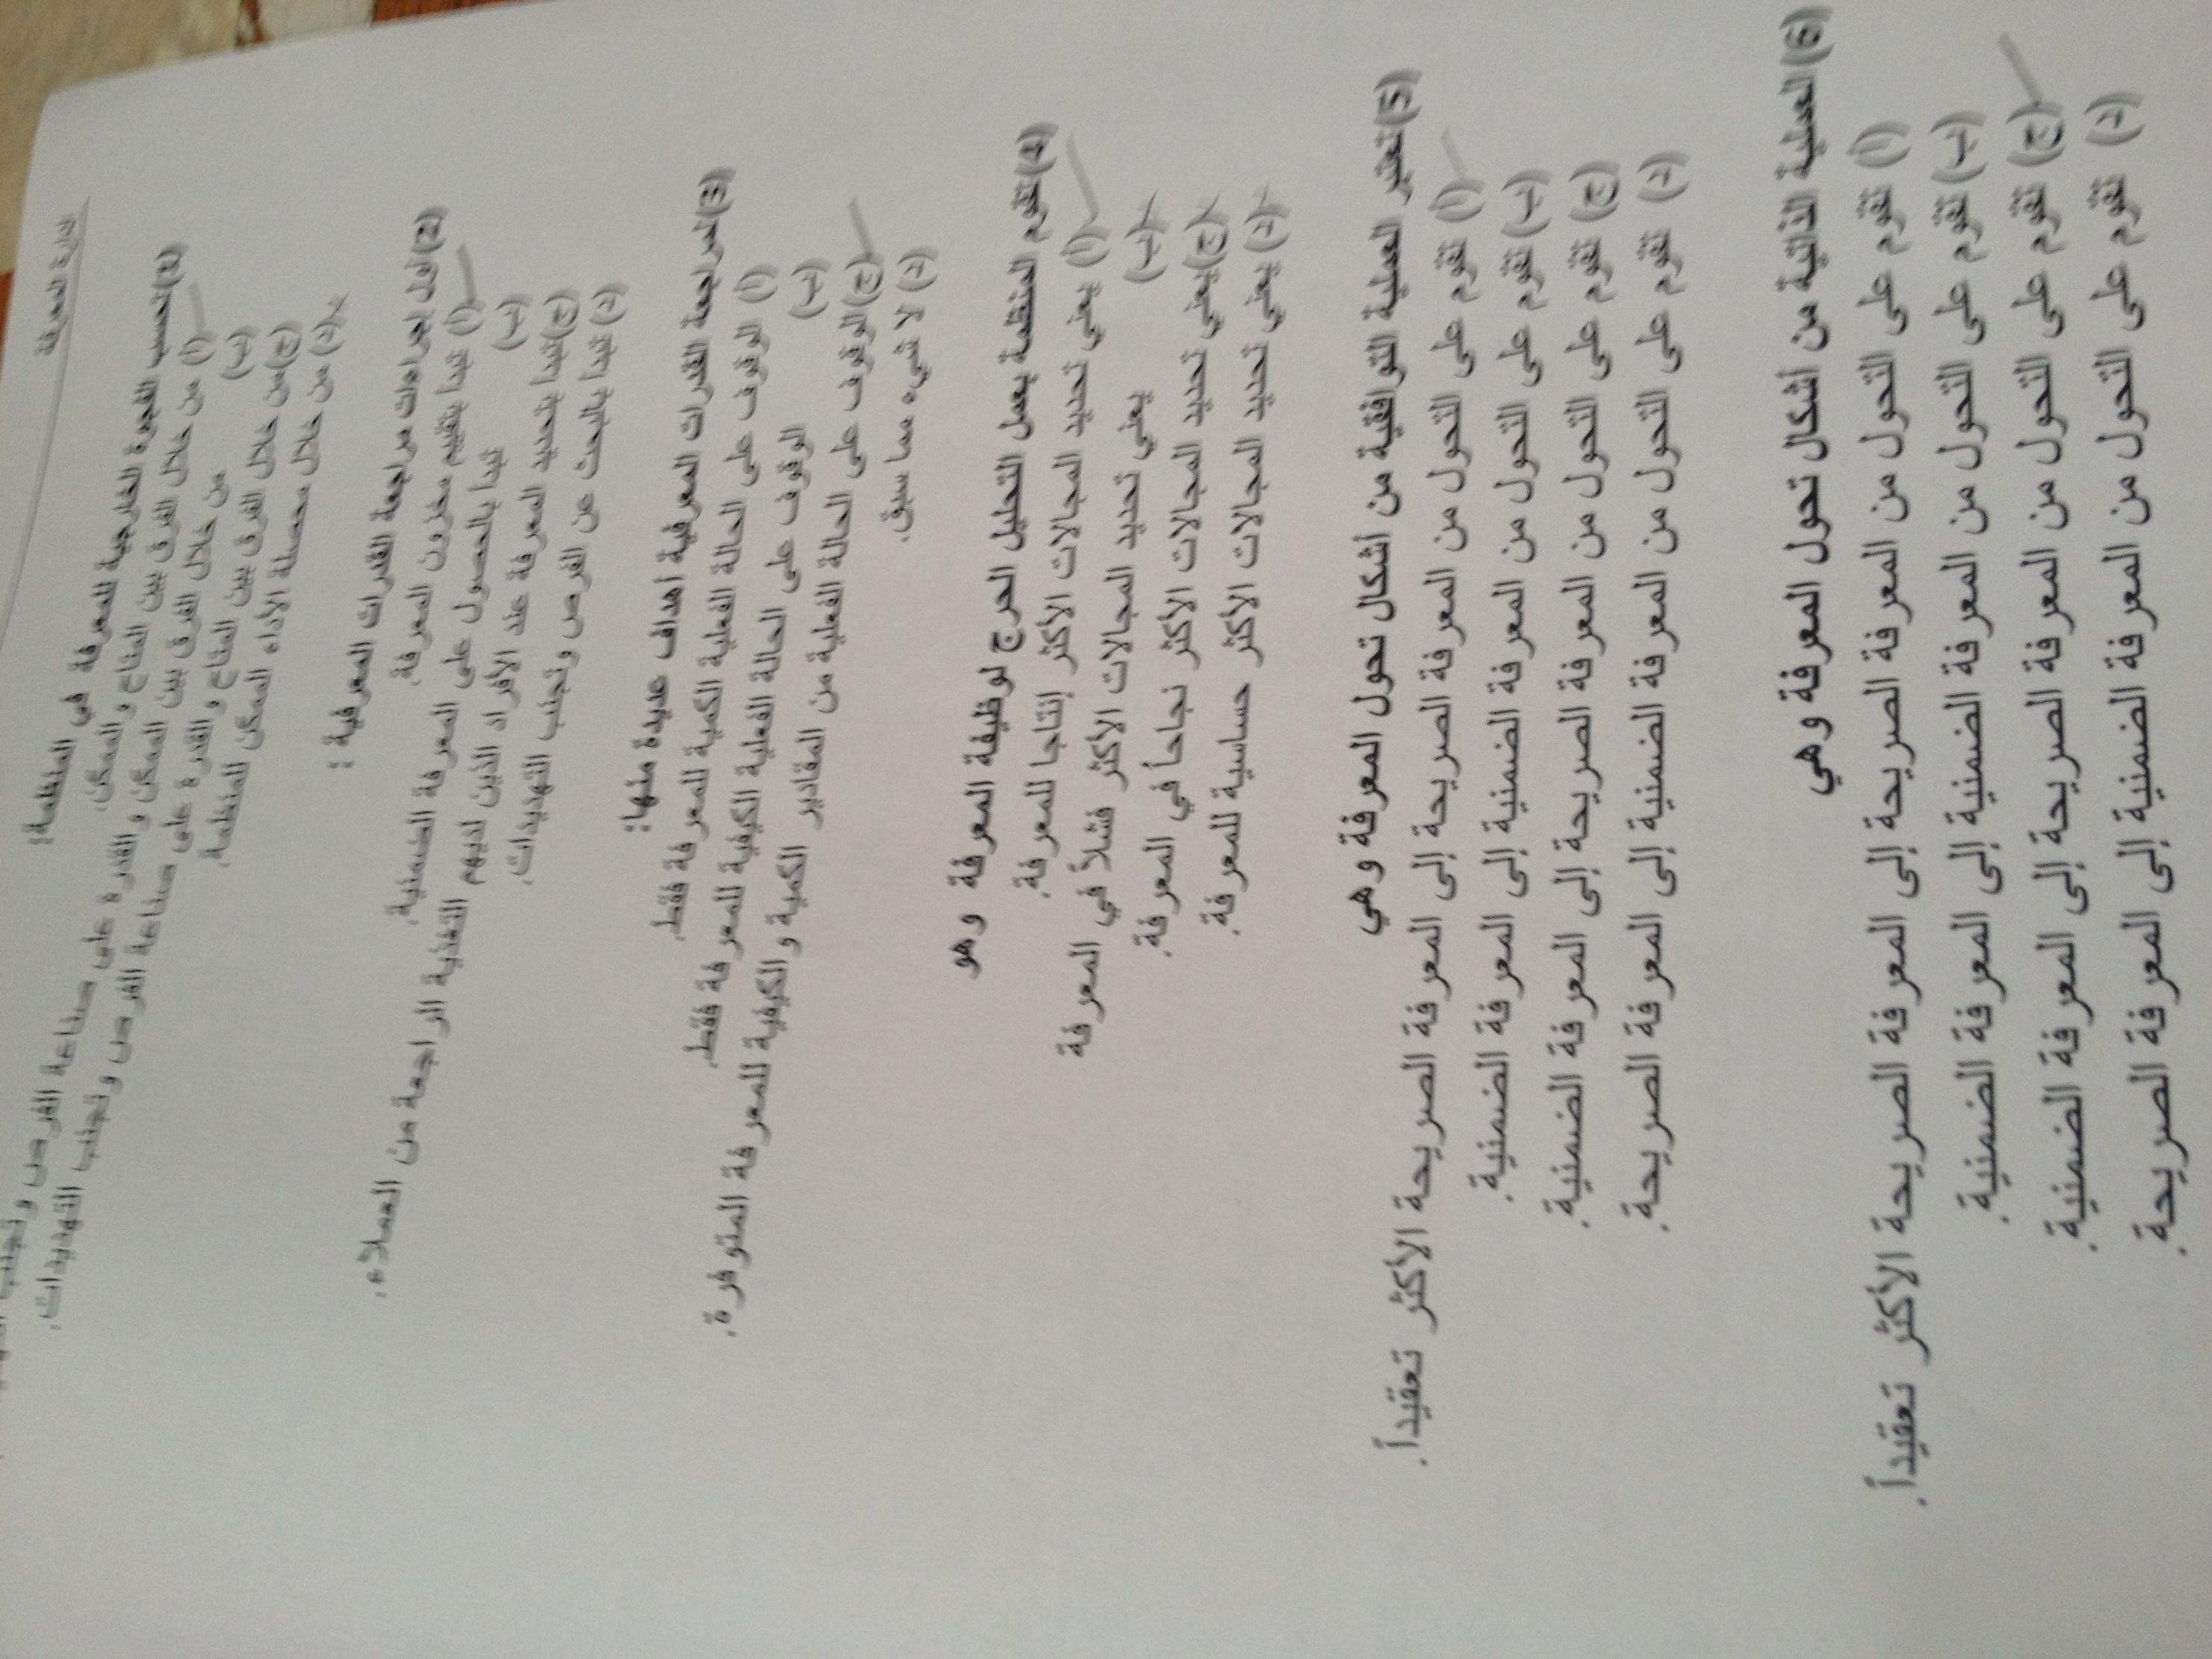 إدارة المعرفة
1) تحسب الفجوة الخارجية للمعرفة في المنظمة:
أ) من خلال الفرق بين المتاح والممكن.
ب) من خلال الفرق بين الممكن والقدرة على صناعة الفرص وتجنب
ج) من خلال الفرق بين المتاح والقدرة على صناعة الفرص وتجنب التهديدات.
د) من خلال محصلة الأداء الممكن للمنظمة.
2) أول إجراءات مراجعة القدرات المعرفية:
أ) تبدأ بتقييم مخزون المعرفة.
ب) تبدأ بالحصول على المعرفة الضمنية.
ج) تبدأ بتحديد المعرفة عند الأفراد الذين لديهم التغذية الراجعة من العملاء.
د) تبدأ بالبحث عن الفرص وتجنب التهديدات.
3) لمراجعة القدرات المعرفية أهداف عديدة منها:
أ) الوقوف على الحالة الفعلية الكمية للمعرفة فقط.
ب) الوقوف على الحالة الفعلية الكيفية للمعرفة فقط.
ج) الوقوف على الحالة الفعلية من المقادير الكمية والكيفية للمعرفة المتوفرة.
د) لا شيء مما سبق.
4) تقوم المنظمة بعمل التحليل الحرج لوظيفة المعرفة وهو
أ) يعني تحديد المجالات الأكثر إنتاجا للمعرفة.
ب) يعني تحديد المجالات الأكثر فشلاً في المعرفة
ج) يعني تحديد المجالات الأكثر نجاحاً في المعرفة.
د) يعني تحديد المجالات الأكثر حساسية للمعرفة.
5) تعتبر العملية التوافقية من أشكال تحول المعرفة وهي
أ) تقوم على التحول من المعرفة الصريحة إلى المعرفة الصريحة الأكثر تعقيداً.
ب) تقوم على التحول من المعرفة الضمنية إلى المعرفة الضمنية.
ج) تقوم على التحول من المعرفة الصريحة إلى المعرفة الضمنية.
د) تقوم على التحول من المعرفة الضمنية إلى المعرفة الصريحة.
6) العملية الذاتية من أشكال تحول المعرفة وهي
أ) تقوم على التحول من المعرفة الصريحة إلى المعرفة الصريحة الأكثر تعقيداً.
ب) تقوم على التحول من المعرفة الضمنية إلى المعرفة الضمنية.
ج) تقوم على التحول من المعرفة الصريحة إلى المعرفة الضمنية.
د) تقوم على التحول من المعرفة الضمنية إلى المعرفة الصريحة.